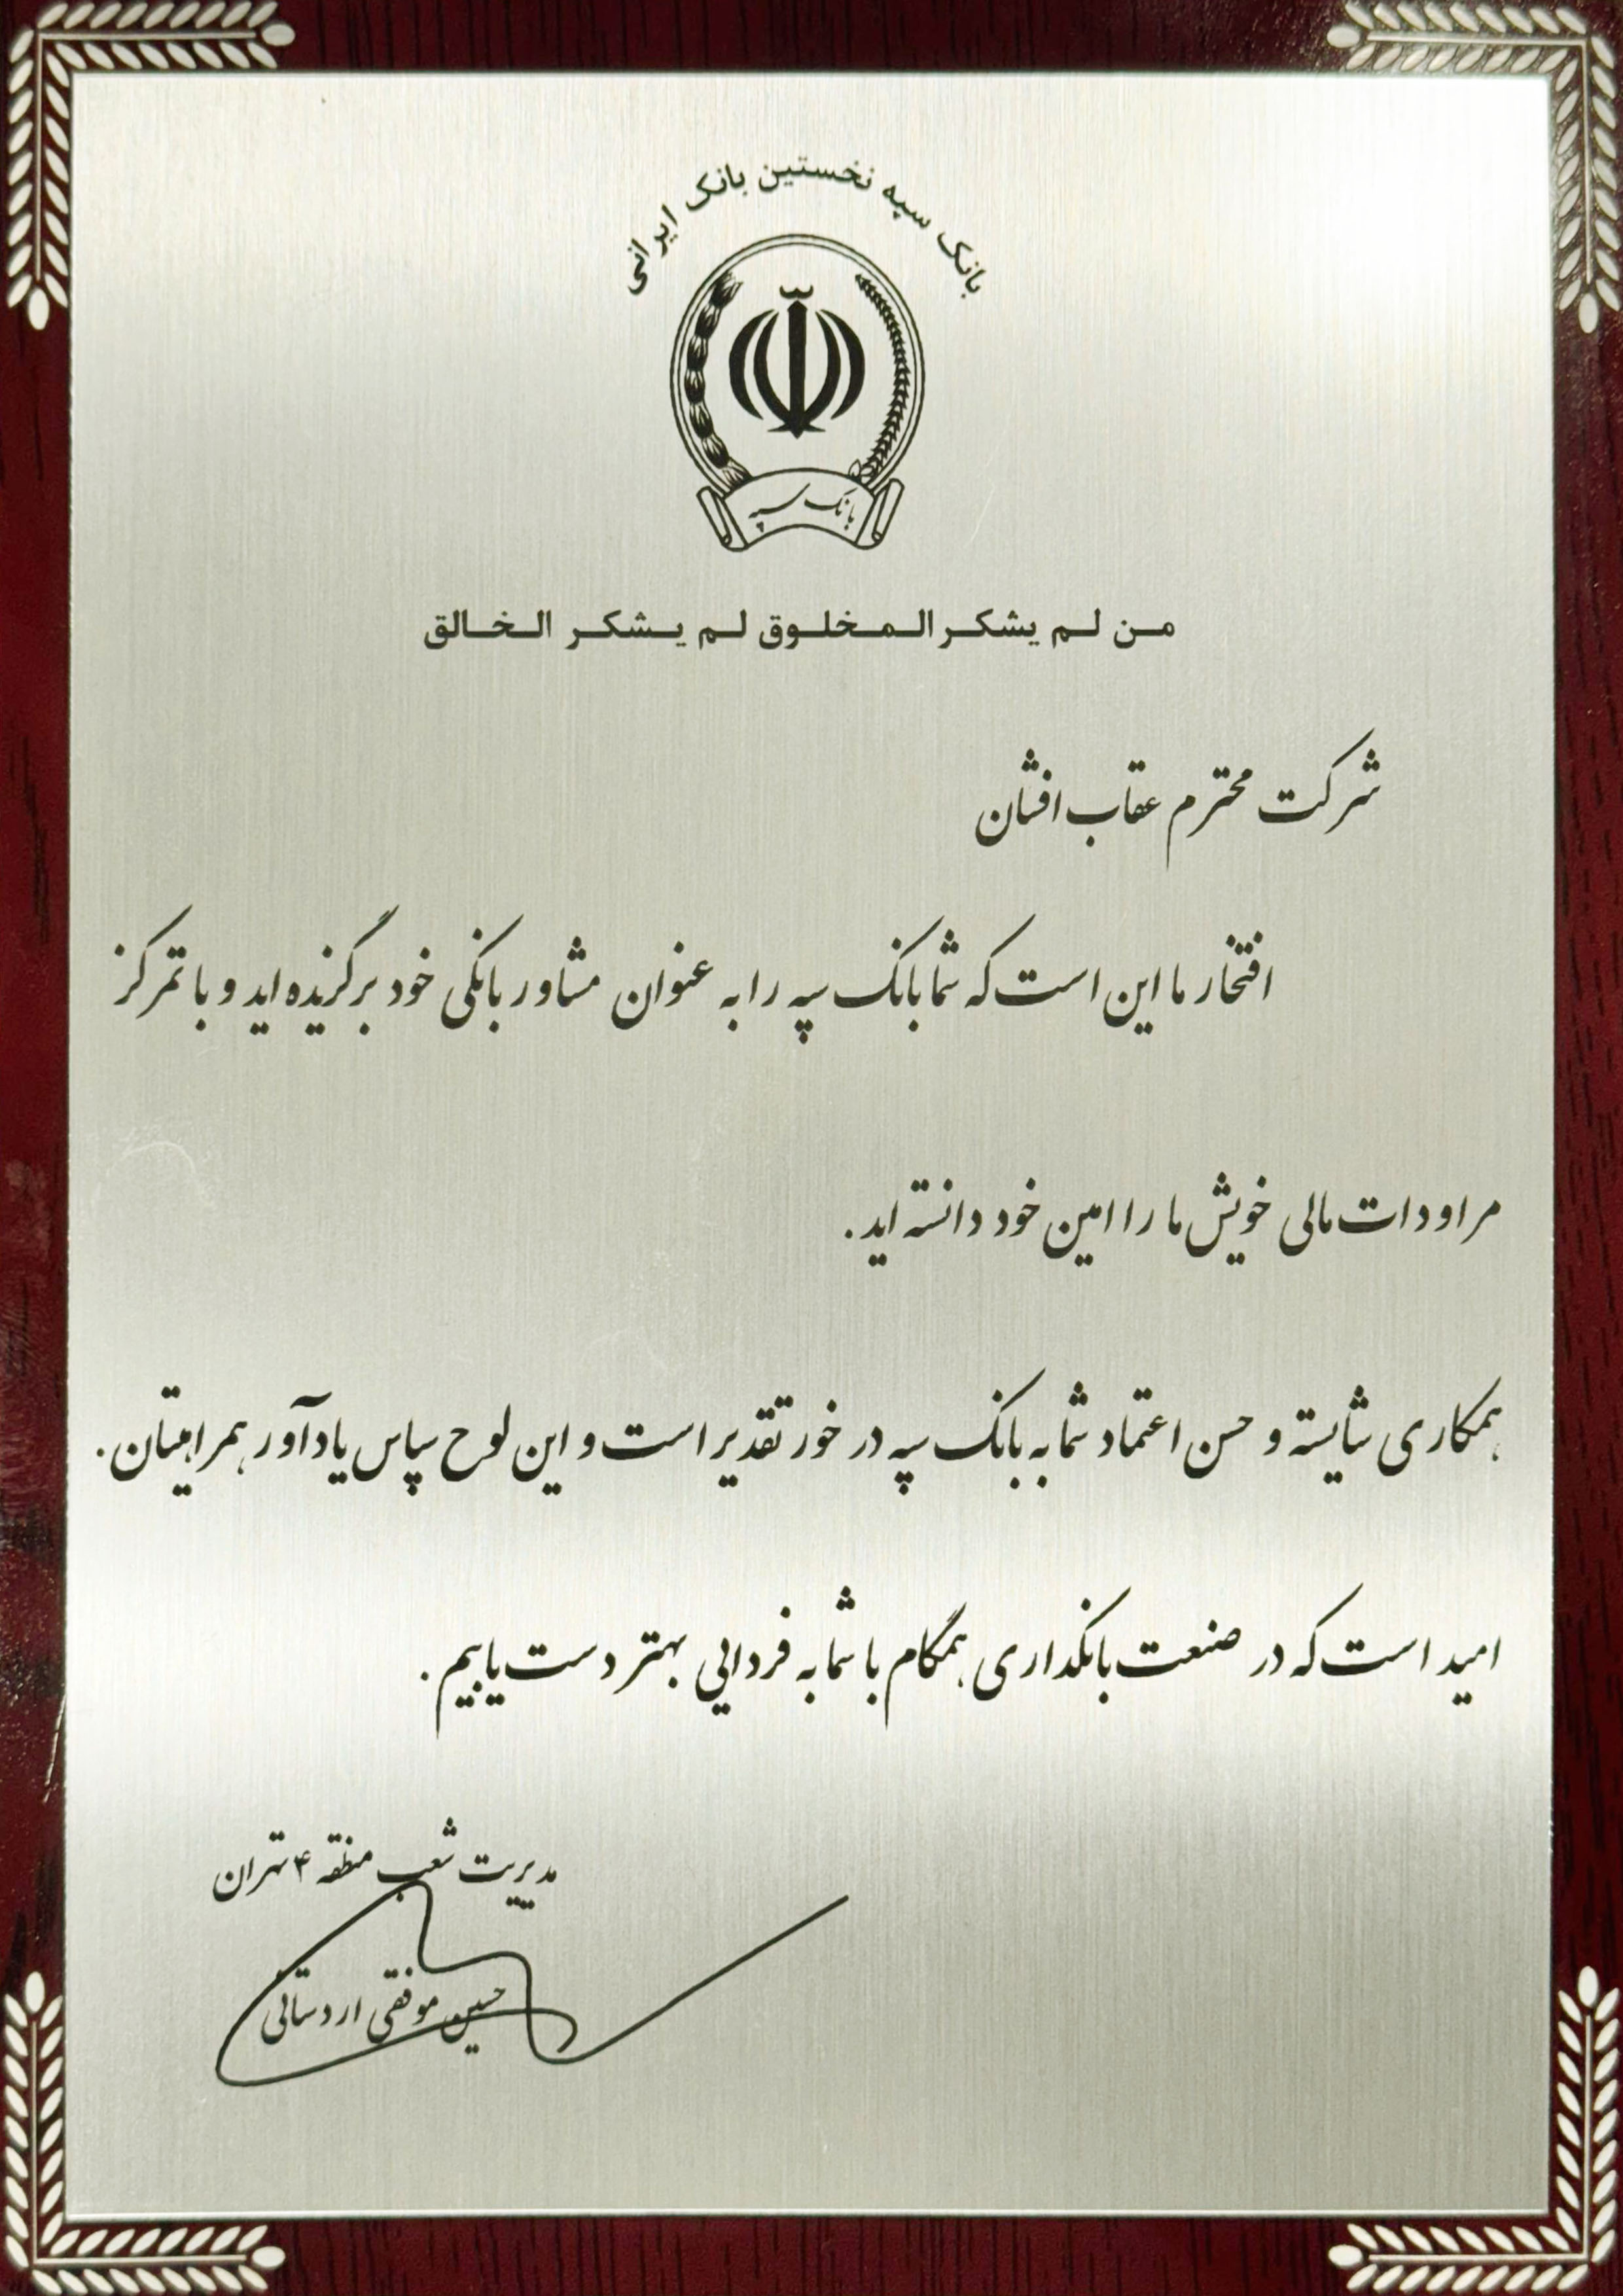 بانک سپه نخستین بانک ایرانی
بانک سپه
من لم یشکر المخلوق لم یشکر الخالق
شرکت محترم عقاب افشان
افتخار ما این است که شما بانک سپه را به عنوان مشاور بانکی خود برگزیده اید و با تمرکز
مراودات مالی خویش ما را امین خود دانسته اید.
همکاری شایسته و حسن اعتماد شما به بانک سپه در خور تقدیر است و این لوح سپاس یادآور همراهیتان.
امید است که در صنعت بانکداری همگام با شما به فردایی بهتر دست یابیم.
مدیریت شعب منطقه ۴ تهران
حسین موفقی اردستانی